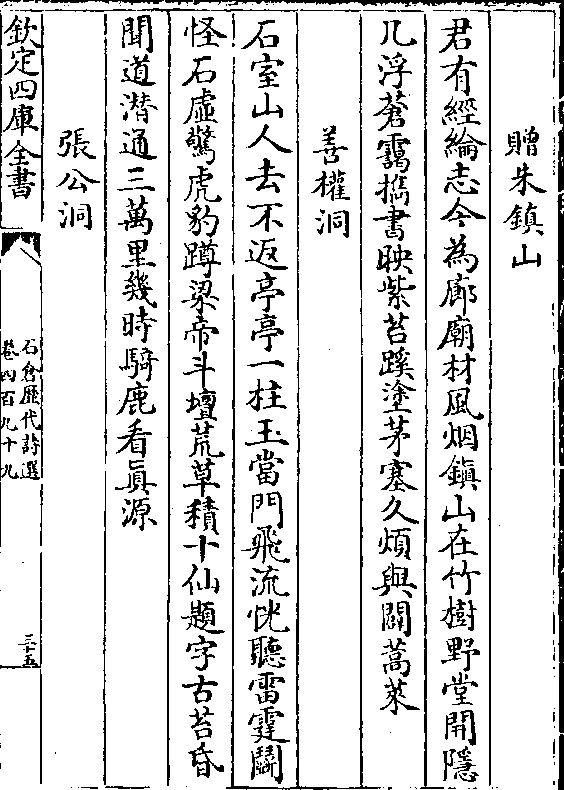 贈朱鎮山
君有經綸志今為廊廟材風烟鎮山在竹樹野堂開隱
几浮蒼靄攤書映紫苔蹊塗茅塞久煩與闢蒿萊
善權洞
石室山人去不返亭亭一柱玉當門飛流恍聽雷霆鬬
怪石虛驚虎豹蹲梁帝斗壇荒草積十仙題字古苔昏
聞道潜通三萬里幾時騎鹿看眞源
張公洞
欽定四庫全書
石倉歷代詩選
卷四百九十九
三十五